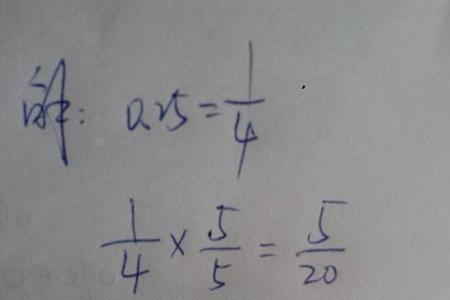 解: 0.25 = 1/4
1/4 × 5/5 = 5/20